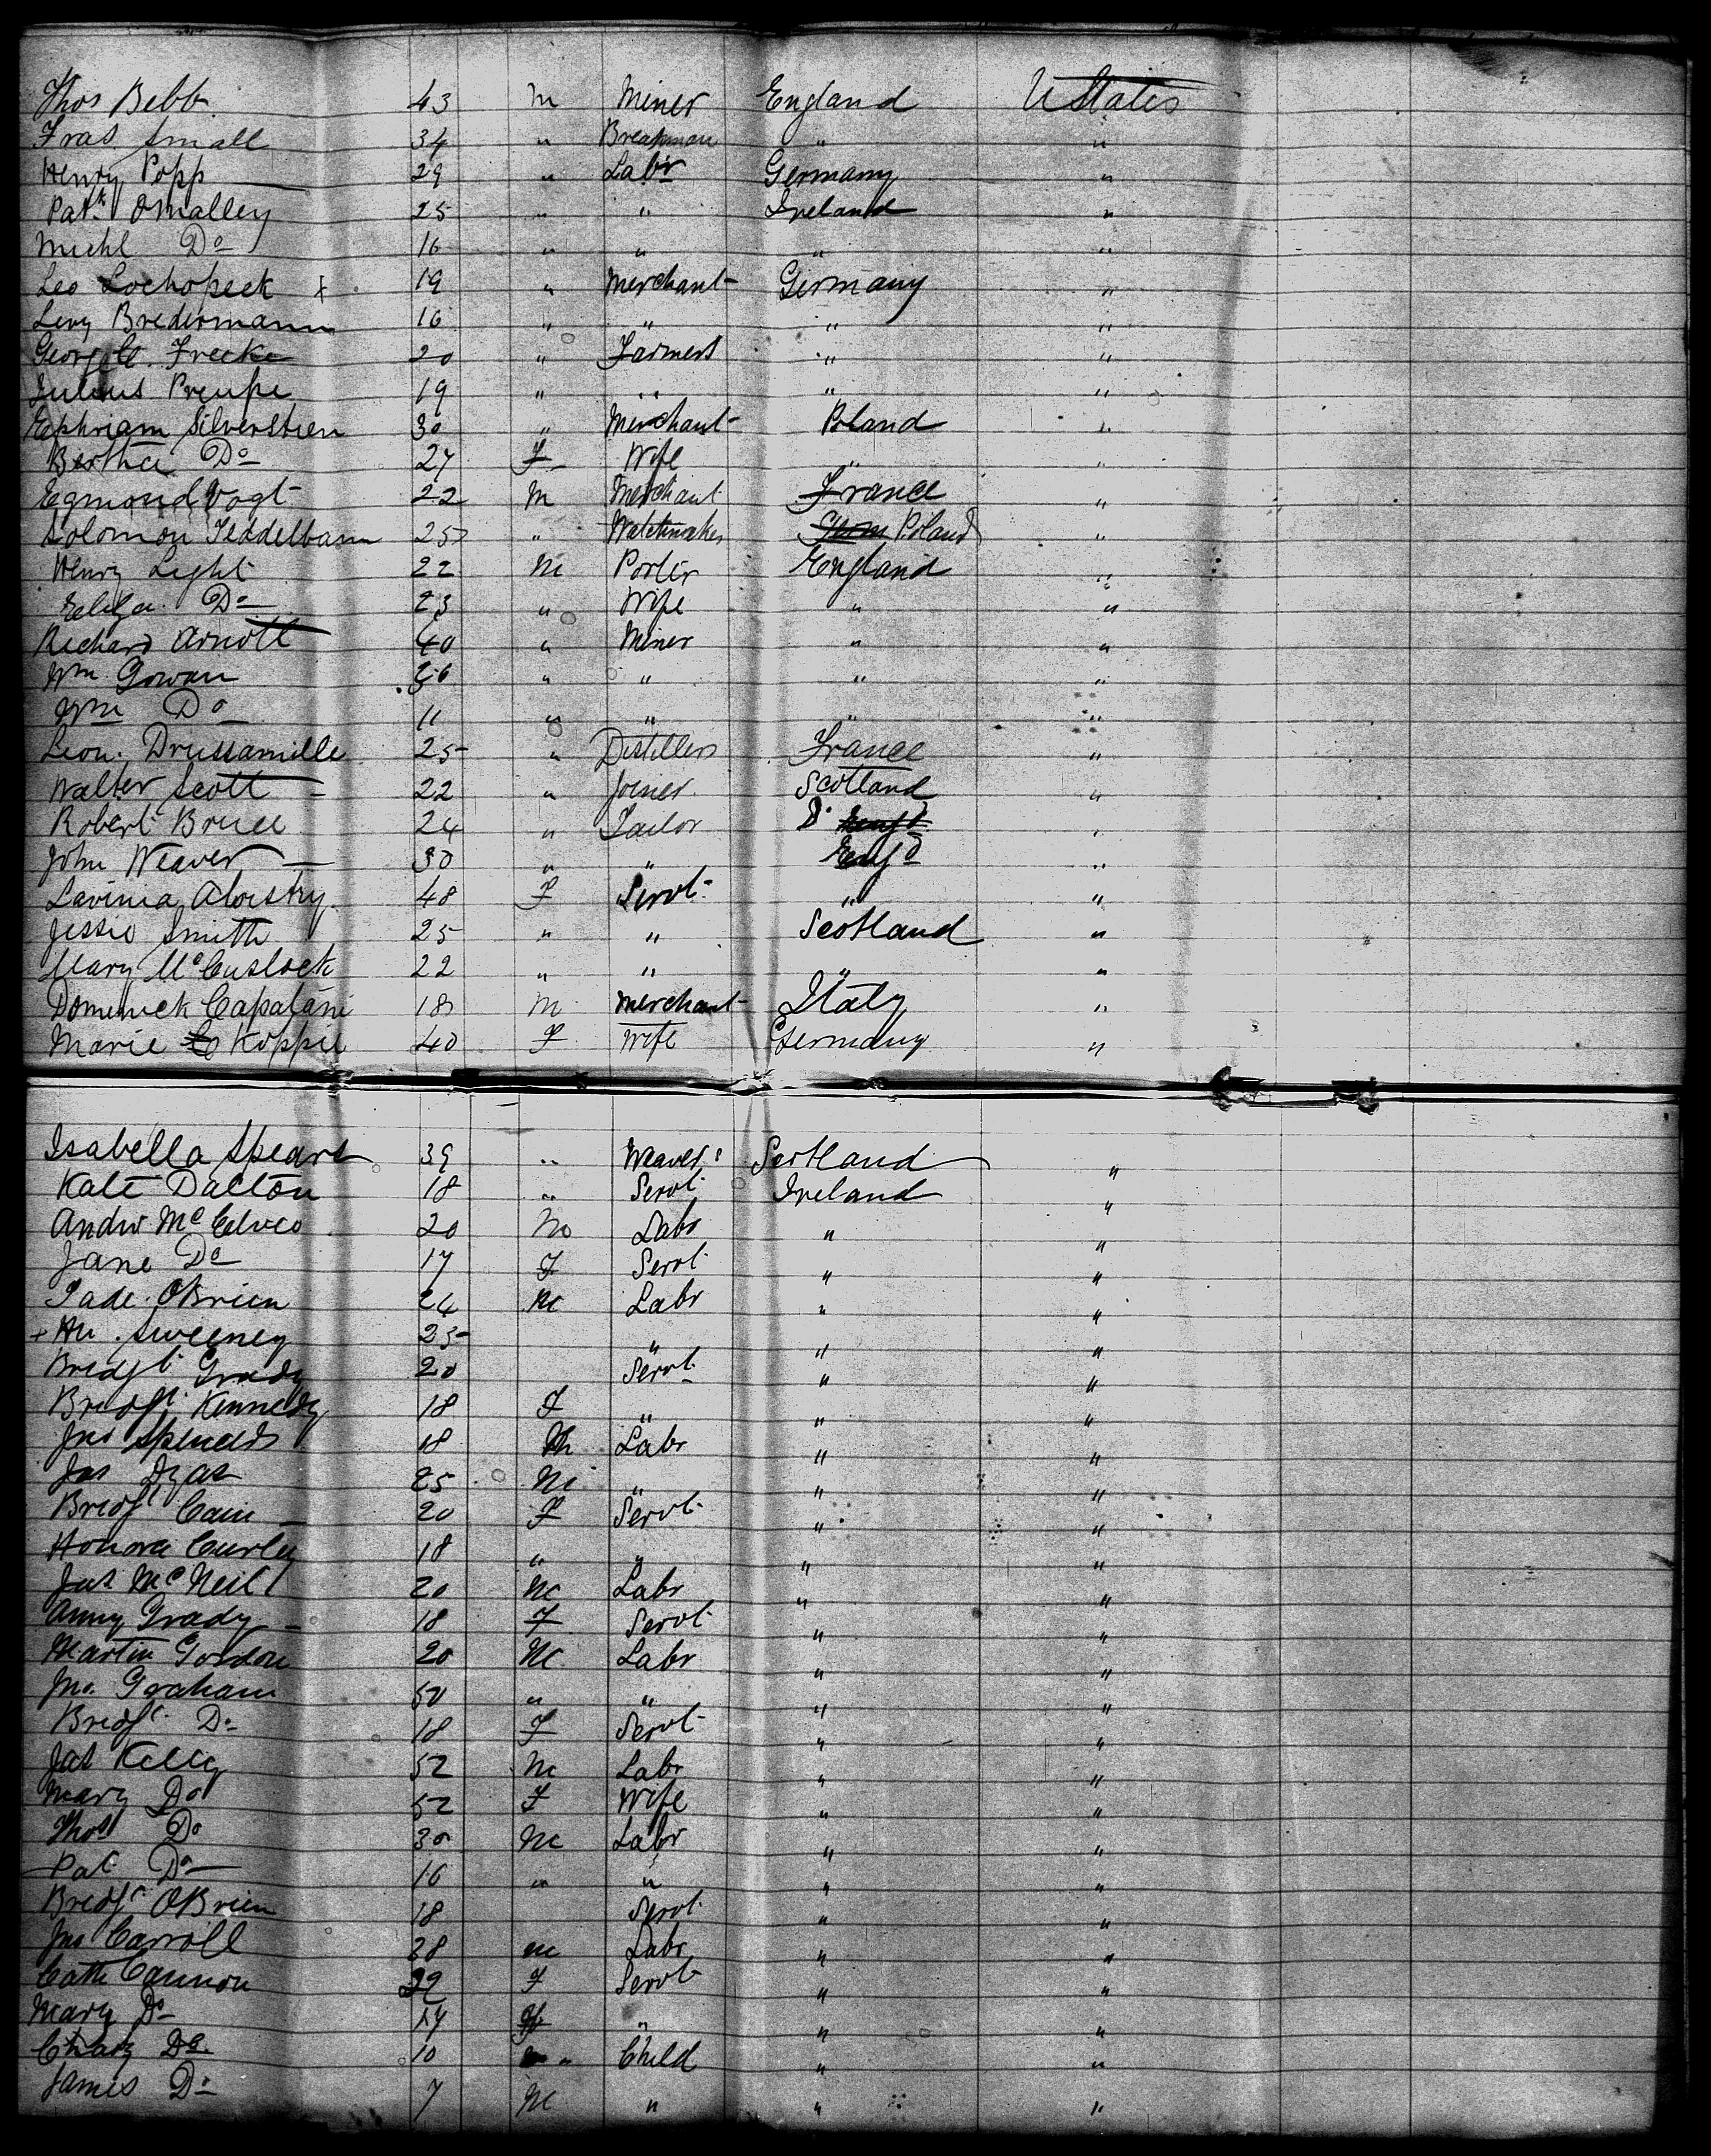 Thos Bebb 43 M Miner England U States
Fras Small 34 " " "
Henry Popp 29 " Labr Germany "
Patk OMalley 25 " " Ireland "
Michl Do 16 " " " "
Leo Lochopeck x 19 " Merchant Germany "
Levy Bredermann 16 " " " "
Frecke 20 " Farmers " "
Julius 19 " " " "
Ephriam Silverstien 30 " Merchant Poland "
Bertha Do 27 F Wife " "
Egmond Vogt 22 M Merchant France "
Solomon Teddelbaum 25 " Watchmaker Germ Poland "
Henry Light 22 M Porter England "
Eliza Do 23 " Wife " "
Richard Arnott 40 " Miner " "
Wm Gowan 36 " " " "
Wm Do 11 " " " "
Leon 25 " Distillers France "
Walter Scott 22 " Joiner Scotland "
Robert Bruce 24 " Tailor Do Engd "
John Weaver 30 " " Engd "
Lavinia 48 F Servt " "
Jessie Smith 25 " " Scotland "
Mary McCuslock 22 " " " "
Domenick Capalani 18 M Merchant Italy "
Marie Koppie 40 F Wife Germany "
Isabella Spears 39 " Weaver Scotland "
Kate Dalton 18 " Servt Ireland "
Andw McElveo 20 M Labr " "
Jane Do 17 F Servt " "
Pade OBrien 24 M Labr " "
+ Sweeney 25 " " "
Bredgt Grady 20 Servt " "
Bredgt Kennedy 18 F " " "
Jno 18 M Labr " "
Jas Dyas 25 M " " "
Bredgt Cain 20 F Servt " "
Honora Curley 18 " " " "
Jas McNeil 20 M Labr " "
Anny Grady 18 F Servt " "
Martin Gordon 20 M Labr " "
Jno. Graham 50 " " " "
Bredgt Do 18 F Servt " "
Jas Kelly 52 M Labr " "
Mary Do 52 F Wife " "
Thos Do 30 M Labr " "
Pat Do 16 " " " "
Bredgt OBrien 18 Servt " "
Jno Carroll 38 m Labr " "
Cath Cannon 39 F Servt " "
Mary Do 14 F " " "
Do 10 " Child " "
James Do 7 M " " "